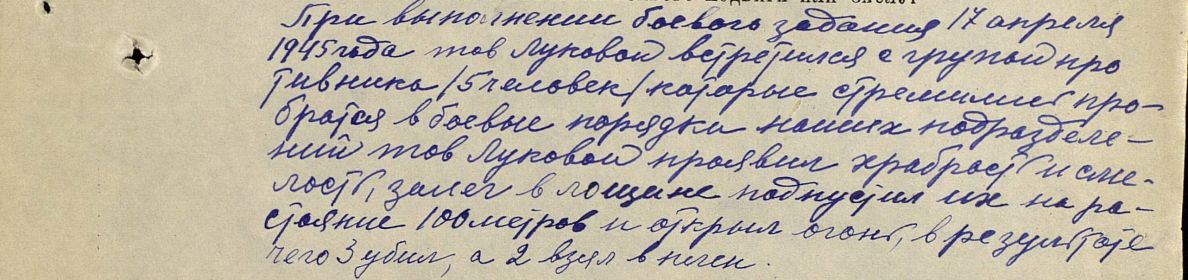 При выполнении боевого задания 17 апреля
1945 года тов Луковой встретился с групой про
тивника /5 человек/ которые стремились про-
братся в боевые порядки наших подразделе-
ний тов Луковой проявил храбрость и сме-
лость, залег в лощине подпустил их на ра-
стояние 100 метров и открыл огонь, в результате
чего 3 убил, а 2 взял в плен.